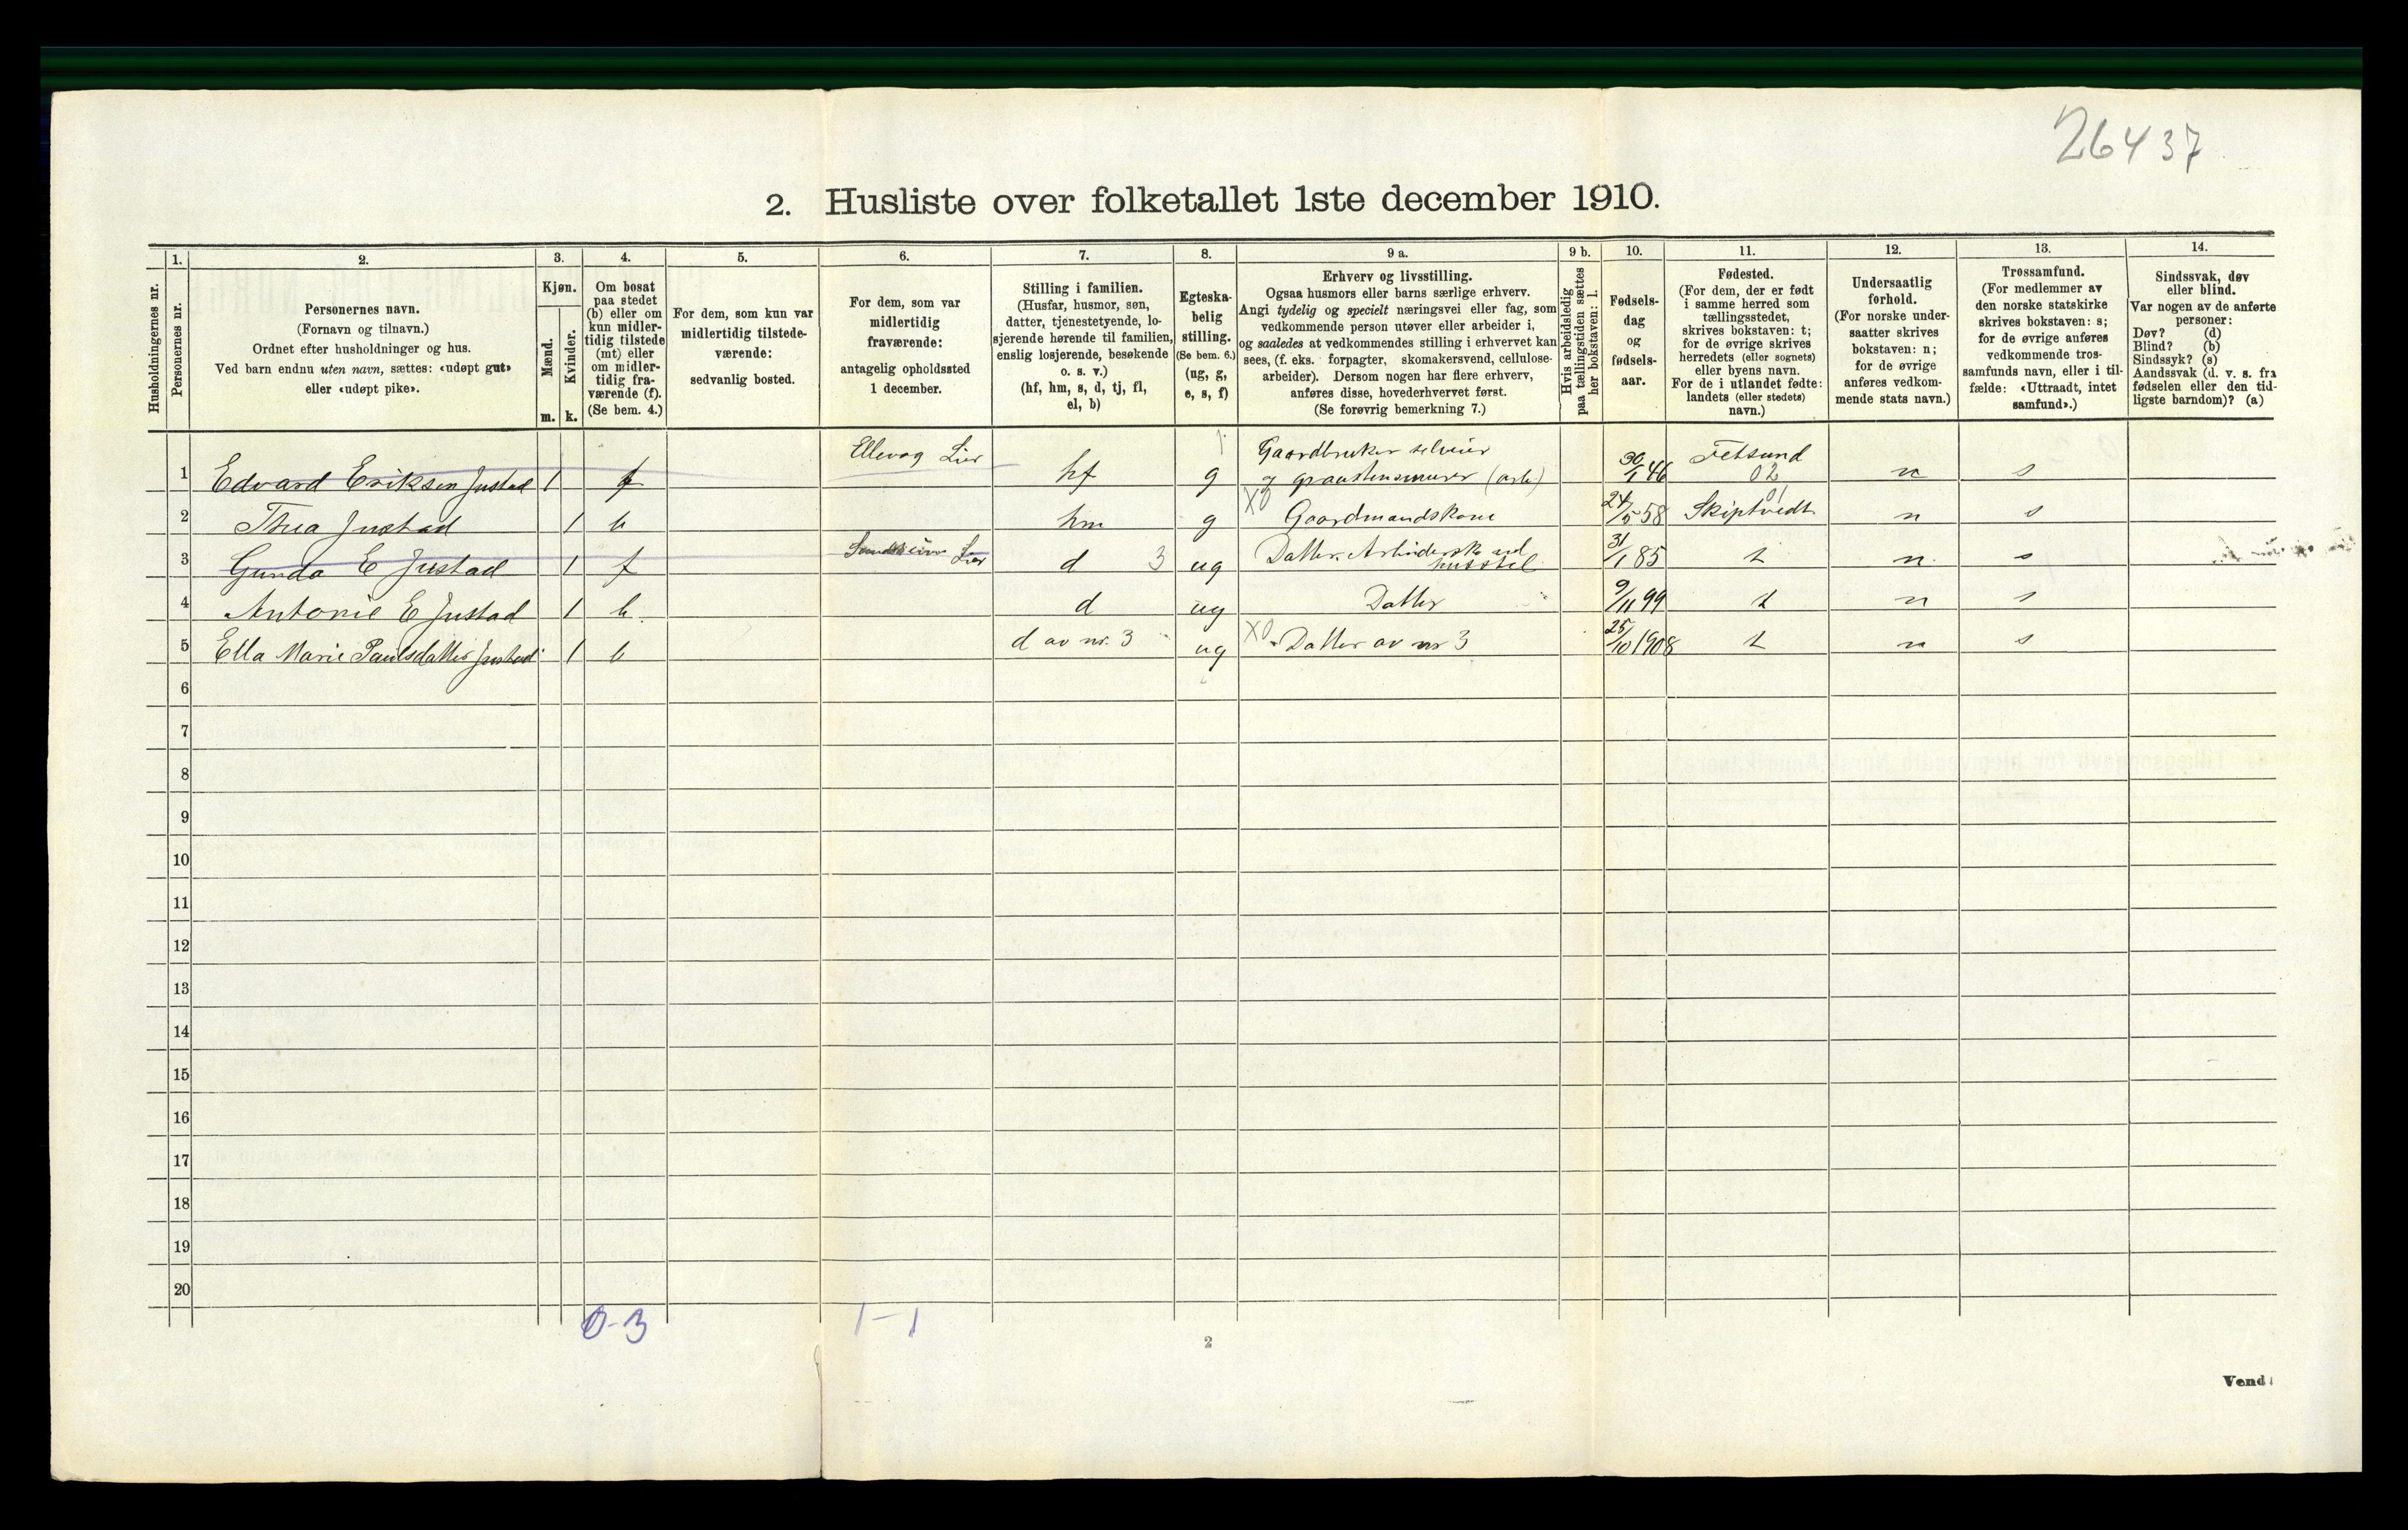 26437
2. Husliste over folketallet 1ste december 1910.
Husholdningernes nr.
1.
Personernes nr.
2.
Personernes navn.
(Fornavn og tilnavn.)
Ordnet efter husholdninger og hus.
Ved barn endnu uten navn, sættes: «udøpt gut»
eller «udøpt pike».
3.
Kjøn.
Mænd.
m.
Kvinder.
k.
4.
Om bosat
paa stedet
(b) eller om
kun midler-
tidig tilstede
(mt) eller
om midler-
tidig fra-
værende (f).
(Se bem. 4.)
5.
For dem, som kun var
midlertidig tilstede-
værende:
sedvanlig bosted.
6.
For dem, som var
midlertidig
fraværende:
antagelig opholdssted
1 december.
7.
Stilling i familien.
(Husfar, husmor, søn,
datter, tjenestetyende, lo-
sjerende hørende til familien,
enslig losjerende, besøkende
o. s. v.)
(hf, hm, s, d, tj, fl,
el, b)
8.
Egteska-
belig
stilling.
(Se bem. 6.)
(ug, g,
e, s, f)
9 a.
Erhverv og livsstilling.
Ogsaa husmors eller barns særlige erhverv.
Angi tydelig og specielt næringsvei eller fag, som
vedkommende person utøver eller arbeider i,
og saaledes at vedkommendes stilling i erhvervet kan
sees, (f. eks. forpagter, skomakersvend, cellulose-
arbeider). Dersom nogen har flere erhverv,
anføres disse, hovederhvervet først.
(Se forøvrig bemerkning 7.)
9 b.
Hvis arbeidsledig
paa tællingstiden sættes
her bokstaven: l.
10.
Fødsels-
dag
og
fødsels-
aar.
11.
Fødested.
(For dem, der er født
i samme herred som
tællingsstedet,
skrives bokstaven: t;
for de øvrige skrives
herredets (eller sognets)
eller byens navn.
For de i utlandet fødte:
landets (eller stedets)
navn.)
12.
Undersaatlig
forhold.
(For norske under-
saatter skrives
bokstaven: n;
for de øvrige
anføres vedkom-
mende stats navn.)
13.
Trossamfund.
(For medlemmer av
den norske statskirke
skrives bokstaven: s;
for de øvrige anføres
vedkommende tros-
samfunds navn, eller i til-
fælde: «Uttraadt, intet
samfund».)
14.
Sindssvak, døv
eller blind.
Var nogen av de anførte
personer:
Døv? (d)
Blind? (b)
Sindssyk? (s)
Aandssvak (d. v. s. fra
fødselen eller den tid-
ligste barndom)? (a)
1 Edvard Eriksen Justad 1 f Ellevog Lier hf g Gaardbruker selveier og graastensmurer (arb) 30/1 46 Fetsund 02 n s
2 Thea Justad 1 b hm g X0 Gaardmandskone 24/5 58 Skiptvedt 01 n s
3 Gunda E Justad 1 f Lier d 3 ug Datter. Arbeiderske ved husstel 31/1 85 t n s
4 Antonie E Justad 1 b d ug Datter 9/11 99 t n s
5 Ella Marie Paulsdatter Justad 1 b d av nr. 3 ug X0 Datter av nr 3 25/10 1908 t n s
6
7
8
9
10
11
12
13
14
15
16
17
18
19
20
0-3 1-1
2
Vend!